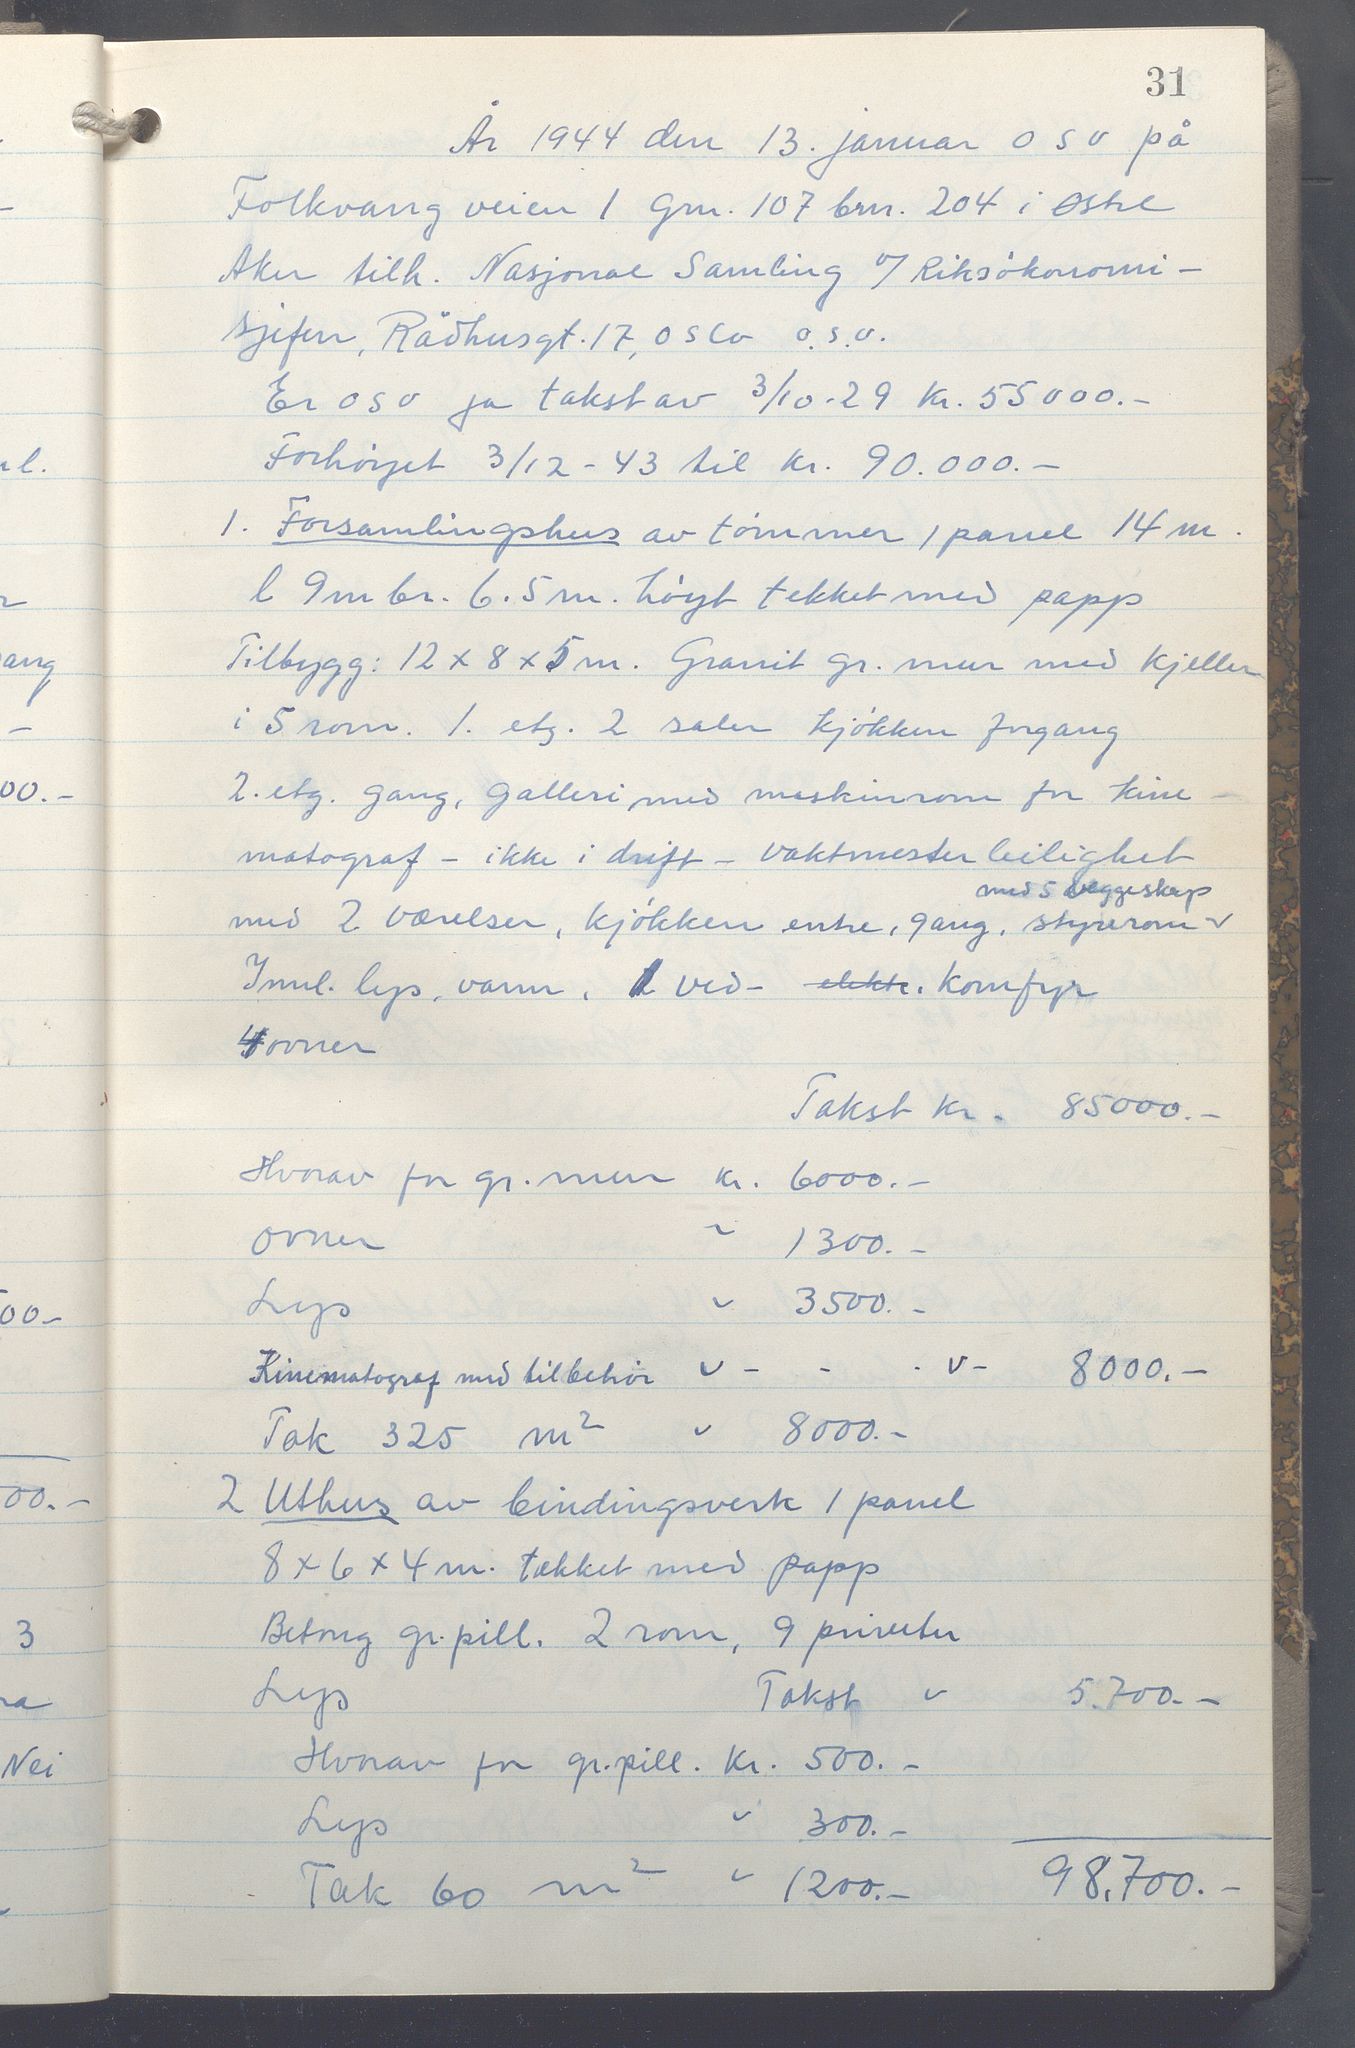 31
År 1944 den 13. januar o s v på
Folkvang veien 1 Gnr. 107 brn. 204 i Østre
Aker tilh. Nasjonal Samling v/ Riksøkonomi-
sjefen, Rådhusgt. 17, Oslo o.s.v.
Er o s v ja takst av 3/10-29 Kr. 55000.-
Forhøyet 3/12-43 til kr. 90.000.-
1. Forsamlingshus av tømmer / panel 14 m.
l 9 m br. 6.5 m. høyt tekket med papp
Tilbygg: 12 x 8 x 5 m. Granit gr. mur med kjeller
i 5 rom. 1. etg. 2 saler kjøkken forgang
2. etg. gang, galleri med maskinrom for kine-
matograf - ikke i drift - vaktmester leilighet
med 5 veggeskap
med 2 værelser, kjøkken entre, gang, styrerom
Innl. lys, vann, 1 ved- elektr. komfyr
4 ovner
Takst kr. 85000.-
Hvorav for gr. mur kr. 6000.-
Ovner " 1300.-
Lys " 3500.-
Kinematograf med tilbehør " - - - " - 8000.-
Tak 325 m² " 8000.-
2 Uthus av bindingsverk / panel
8 x 6 x 4 m. tekket med papp
Betong gr. pill. 2 rom, 9 priveter
Lys Takst " 5.700.-
Hvorav for gr. pill. Kr. 500.-
Lys " 300.-
Tak 60 m² " 1200.- 98.700.-
nl.
ang
00.-
00-
00.-
3
Nei